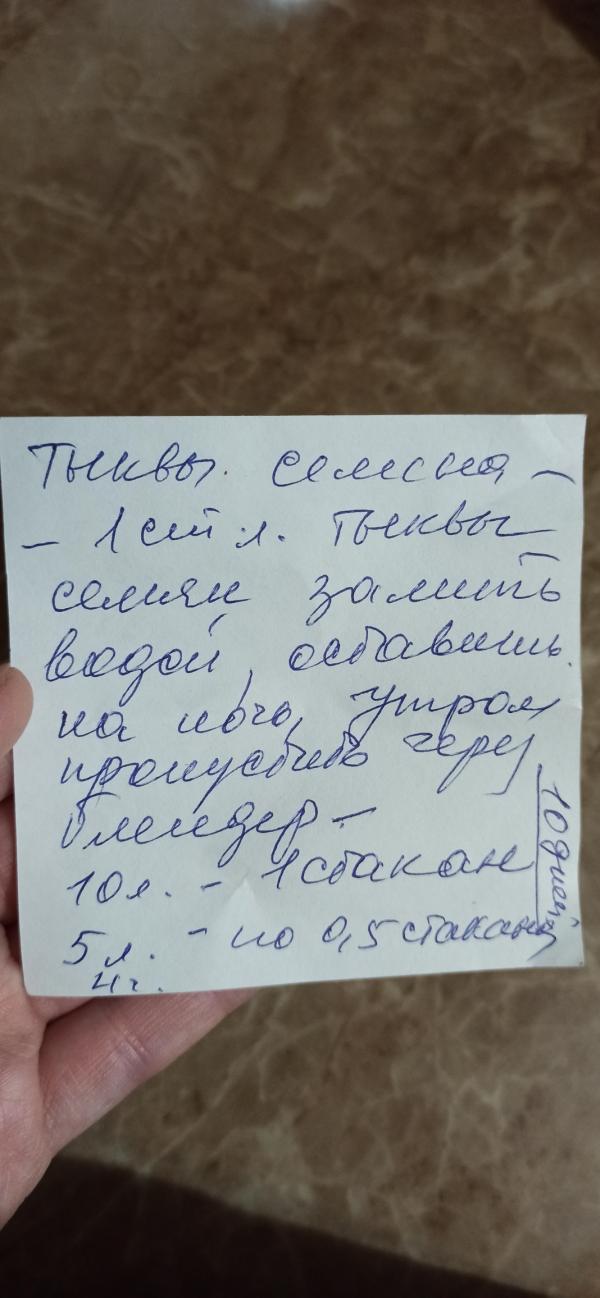 Тыквы. семена –
– 1 ст л. тыквы
семян залить
водой, оставить
на ночь, утром
пропустить через
блендер –
10 л. – 1 стакан
5 л. – по 0,5 стакана
4 г.
10 дней